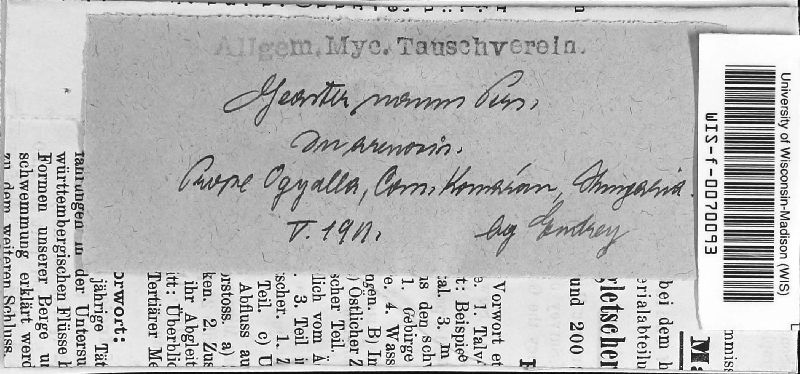 Allgem. Myc. Tauschverein.
Geaster nanus Pers.
In arenosis.
Prope Ogyalla, Com. Komárom, Hungaria.
V. 1911.
leg
University of Wisconsin-Madison (WIS)
WIS-f-0070093
zu dem weiteren Schluss,
schwemmung erklärt werd
Formen unserer Berge un
württembergischen Flüsse
fahrungen in der Untersu
jährige Tät
orwort:
Tertiärer Me
itt: Überblic
ken. 2. Zus
ihr Abgleit
orstoss. a)
Abfluss au
Teil. c) U
rscher. 1. Z
. 3. Teil i
lich vom
scher Teil.
) Östlicher Z
ngen. B) In
1. Gebirge
e. 4. Wass
us den sch
tal. 3, m
t: Beispiele
e. 1. Talv
Vorwort et
und 200
gletscher
erialabteilu
bei dem h
ommiss